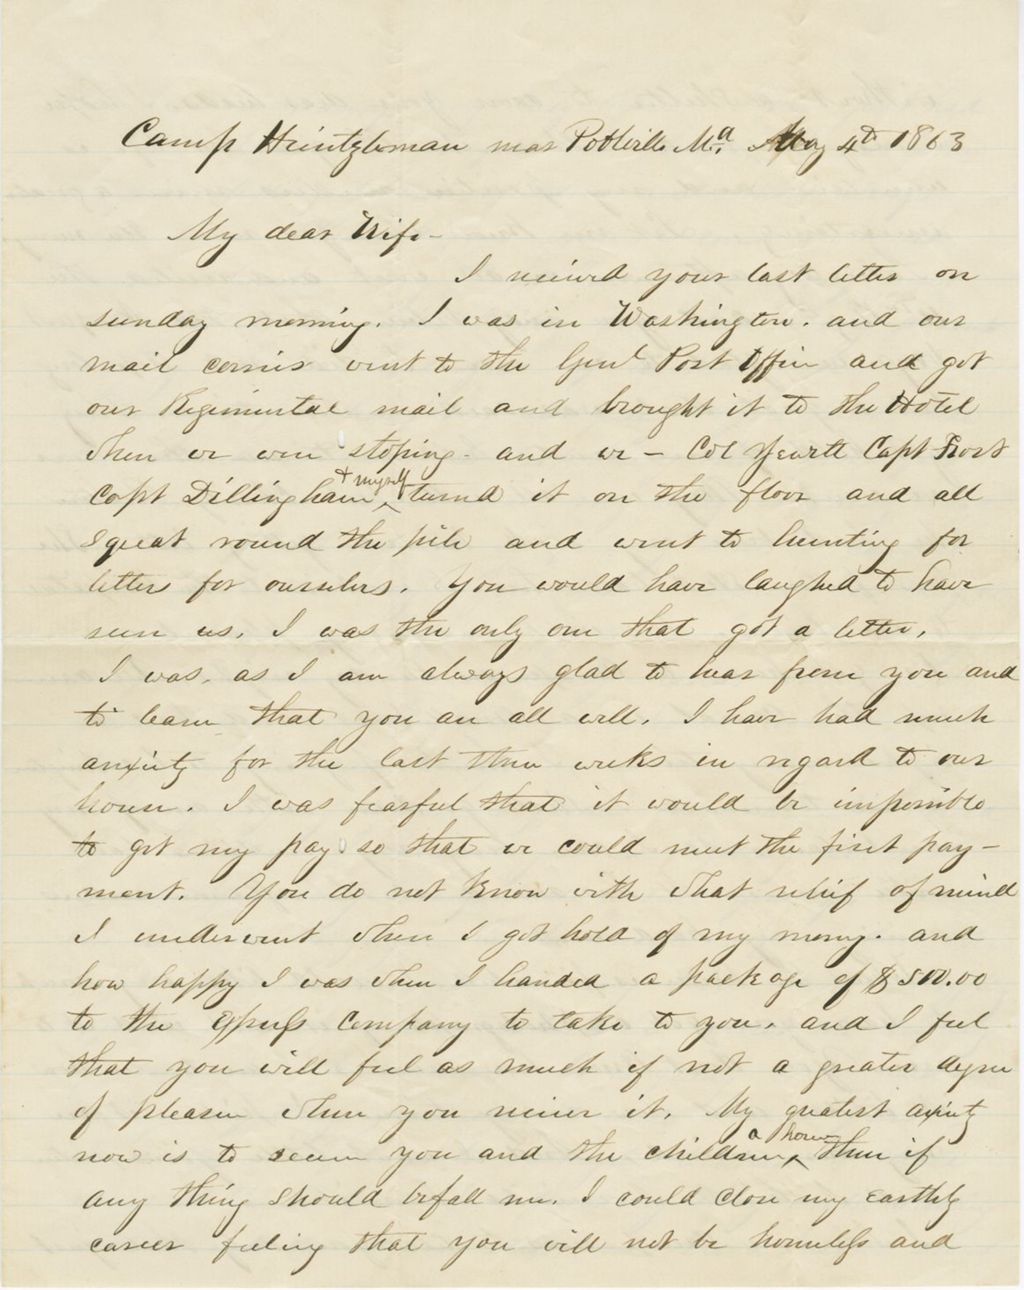 Camp Heintzleman near Poolsville Md. May 4th 1863
My dear Wife-
I recieved your last letter on
sunday morning. I was in Washington. and our
mail carrier went to the Genl Post Office and got
our Regimental mail and brought it to the Hotel
when we were stoping - and we - Col Capt Frost
Capt Dillingham + myself turned it on the floor and all
squat round the pile and went to hunting for
letters for ourselves. You would have laughed to have
seen us. I was the only one that got a letter.
I was, as I am always glad to hear from you and
to learn that you are all well. I have had much
anxiety for the last three weeks in regard to our
house. I was fearful that it would be impossible
to get my pay so that we could meet the first pay-
ment. You do not know with what relief of mind
I underwent when I got hold of my money. and
how happy I was when I handed a package of $500.00
to the Express Company to take to you. and I feel
that you will feel as much if not a greater degree
of pleasure when you receive it. My greatest anxiety
now is to secure you and the children a home then if
any thing should befall me. I could close my earthly
career feeling that you will not be homeless and